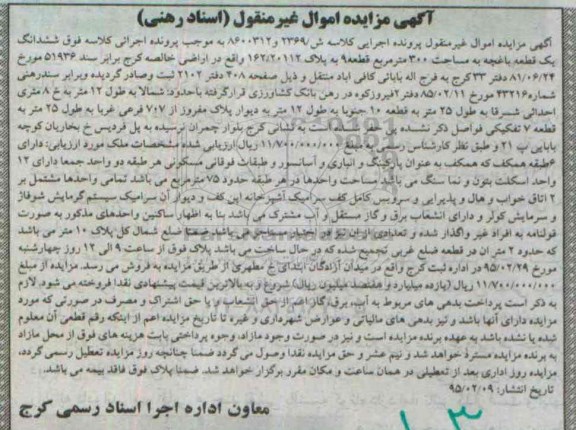 آگهی مزایده اموال غیرمنقول (اسناد رهنی)
آگهی مزایده اموال غیرمنقول پرونده اجرایی کلاسه ش/۲۳۶۹ و ۸۶۰۰۳۱۲ به موجب پرونده اجرائی کلاسه فوق ششدانگ
یک قطعه باغچه به مساحت ۳۰۰ مترمربع قطعه ۹ به پلاک ۱۶۲/۲۰۱۱۲ واقع در اراضی خالصه کرج برابر سند ۵۱۹۳۶ مورخ
۸۱/۰۶/۲۴ دفتر ۳۳ کرج به فرج اله بابائی کافی اباد منتقل و ذیل صفحه ۲۰۸ دفتر ۲۱۰۲ ثبت وصادر گردیده وبرابر سندرهنی
شماره ۴۳۲۱۶ مورخ ۸۵/۰۲/۱۱ دفتر ۲ فیروزکوه در رهن بانک کشاورزی قرارگرفته باحدود: شمالا به طول ۱۲ متر به خ ۸ متری
احداثی شرقا به طول ۲۵ متر به قطعه ۱۰ جنوبا به طول ۱۲ متر به دیوار پلاک مفروز از ۷۰۷ فرعی غربا به طول ۲۵ متر به
قطعه ۷ تفکیکی فواصل ذکر نشده پل حفر نشده است به نشانی کرج بلوار چمران نرسیده به پل فردیس خ بخاریان کوچه
بابایی پ ۲۱ و طبق نظر کارشناس رسمی به مبلغ ۱۱/۷۰۰/۰۰۰/۰۰۰ ریال ارزیابی شده مشخصات ملک مورد ارزیابی: دارای
۶طبقه همکف که همکف به عنوان پارکینگ و انباری و آسانسور و طبقات فوقانی مسکونی هر طبقه دو واحد جمعا دارای ۱۲
واحد اسکلت بتون و نما سنگ می باشد مساحت واحدها در هر طبقه حدود ۷۵ مترمربع می باشد تمامی واحدها مشتمل بر
۲ اتاق خواب و هال و پذیرایی و سرویس کامل کف سرامیک آشپزخانه اپن کف و دیوار آن سرامیک سیستم گرمایش شوفاژ
و سرمایش کولر و دارای انشعاب برق و گاز مستقل و آب مشترک می باشد بنا به اظهار ساکنین واحدهای مذکور به صورت
قولنامه به افراد غیر واگذار شده و تعدادی از آن نیز در اختیار مستاجر می باشد ضمنا ضلع شمال کل پلاک ۱۰ متر می باشد
که حدود ۲ متر آن در قطعه ضلع غربی تجمیع شده که در حال ساخت می باشد پلاک فوق از ساعت ۹ الی ۱۲ روز چهارشنبه
مورخ ۹۵/۰۲/۲۹ در اداره ثبت کرج واقع در میدان آزادگان ابتدای خ مطهری از طریق مزایده به فروش می رسد. مزایده از مبلغ
۱۱/۷۰۰/۰۰۰/۰۰۰ ریال (یازده میلیارد و هفتصد میلیون ریال) شروع و به بالاترین قیمت پیشنهادی نقدا فروخته می شود. لازم
به ذکر است پرداخت بدهی های مربوط به آب، برق، گاز اعم از حق انشعاب و یا حق اشتراک و مصرف در صورتی که مورد
مزایده دارای آنها باشد و نیز بدهی های مالیاتی و عوارض شهرداری و غیره تا تاریخ مزایده اعم از اینکه رقم قطعی آن معلوم
شده یا نشده باشد به عهده برنده مزایده است و نیز در صورت وجود مازاد، وجوه پرداختی بابت هزینه های فوق از محل مازاد
به برنده مزایده مسترد خواهد شد و نیم عشر و حق مزایده نقدا وصول می گردد ضمنا چنانچه روز مزایده تعطیل رسمی گردد،
مزایده روز اداری بعد از تعطیلی در همان ساعت و مکان مقرر برگزار خواهد شد. ضمنا پلاک فوق فاقد بیمه می باشد.
تاریخ انتشار: ۹۵/۰۲/۰۹
معاون اداره اجرا اسناد رسمی کرج